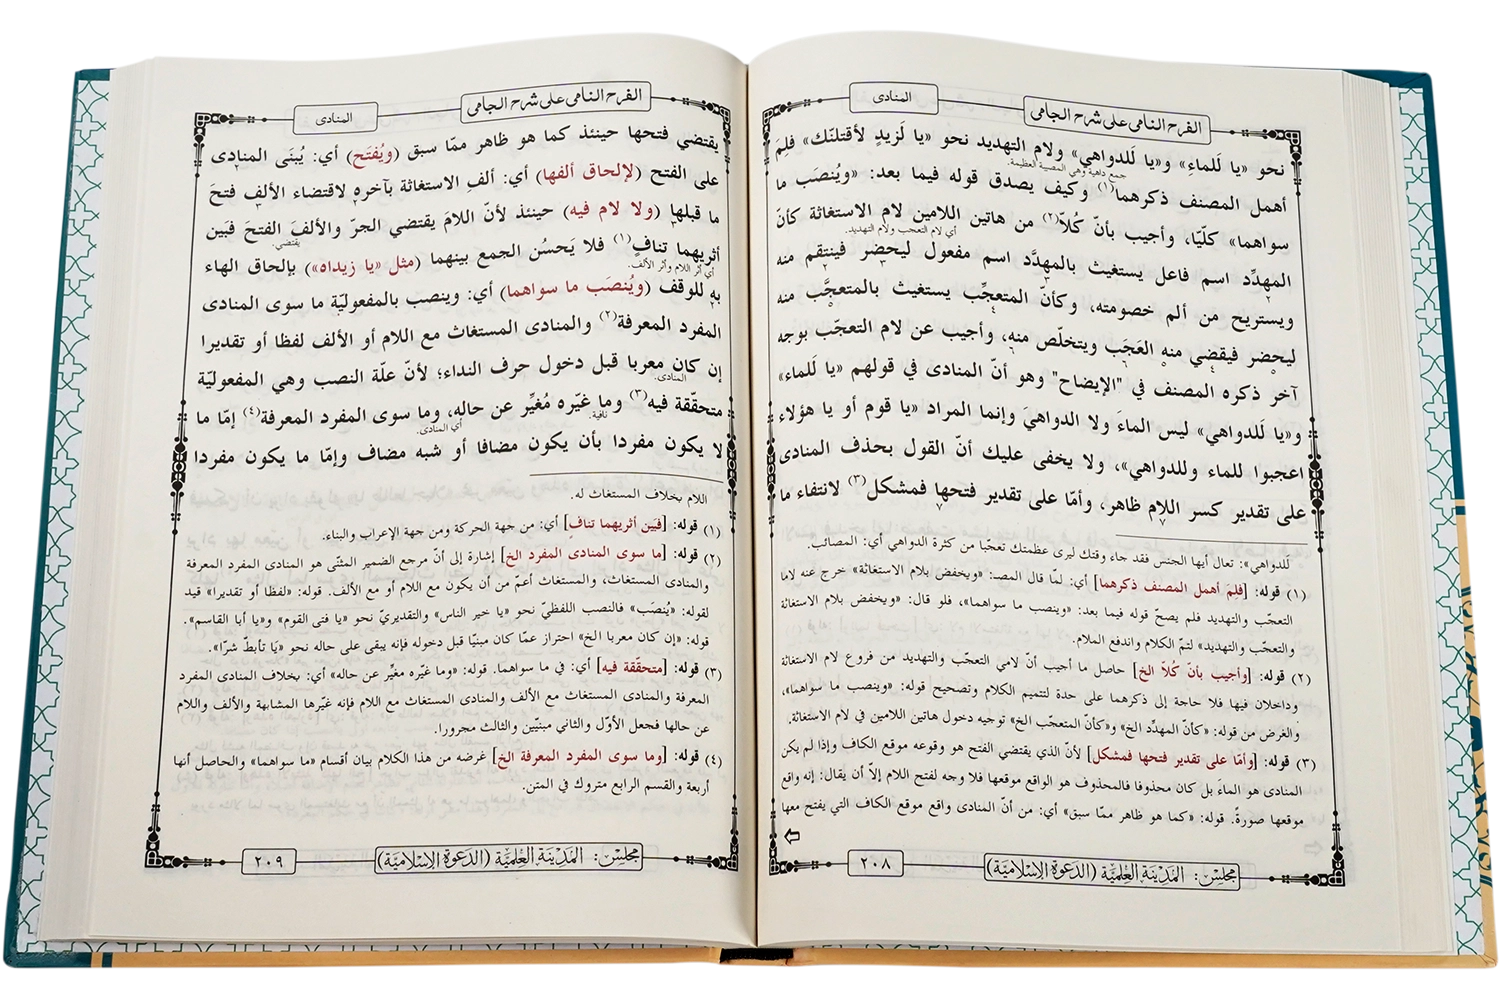 المنادى
الفرح النامي على شرح الجامي
نحو «يا لَلماءِ» و«يا لَلدواهي» ولام التهديد نحو «يا لَزيدٍ لأقتلنّك» فلِمَ
جمع داهية وهي المصيبة العظيمة.
أهمل المصنف ذكرهما(١) وكيف يصدق قوله فيما بعد: «ويُنصَب ما
سواهما» كلّيّا، وأجيب بأنّ كُلّا(٢) من هاتين اللامين لام الاستغاثة كأنّ
أي لام التعجب ولام التهديد.
المهدِّد اسم فاعل يستغيث بالمهدَّد اسم مفعول ليحضر فينتقم منه
ويستريح من ألم خصومته، وكأنّ المتعجِّب يستغيث بالمتعجَّب منه
ليحضر فيقضي منه العَجَب ويتخلّص منه، وأجيب عن لام التعجّب بوجه
آخر ذكره المصنف في "الإيضاح" وهو أنّ المنادى في قولهم «يا لَلماء»
و«يا لَلدواهي» ليس الماءَ ولا الدواهيَ وإنما المراد «يا قوم أو يا هؤلاء
اعجبوا للماء وللدواهي»، ولا يخفى عليك أنّ القول بحذف المنادى
على تقدير كسر اللام ظاهر، وأمّا على تقدير فتحها فمشكل(٣) لانتفاء ما
للدواهي»: تعال أيها الجنس فقد جاء وقتك ليرى عظمتك تعجّبا من كثرة الدواهي أي: المصائب.
(١) قوله: [فلِمَ أهمل المصنف ذكرهما] أي: لمّا قال المصـ: «ويخفض بلام الاستغاثة» خرج عنه لاما
التعجّب والتهديد فلم يصحّ قوله فيما بعد: «وينصب ما سواهما»، فلو قال: «ويخفض بلام الاستغاثة
والتعجّب والتهديد» لتمّ الكلام واندفع الملام.
(٢) قوله: [وأجيب بأنّ كُلّا الخ] حاصل ما أجيب أنّ لامي التعجّب والتهديد من فروع لام الاستغاثة
وداخلان فيها فلا حاجة إلى ذكرهما على حدة لتتميم الكلام وتصحيح قوله: «وينصب ما سواهما»،
والغرض من قوله: «كأنّ المهدِّد الخ» و«كأنّ المتعجّب الخ» توجيه دخول هاتين اللامين في لام الاستغاثة.
(٣) قوله: [وأمّا على تقدير فتحها فمشكل] لأنّ الذي يقتضي الفتح هو وقوعه موقع الكاف وإذا لم يكن
المنادى هو الماءَ بل كان محذوفا فالمحذوف هو الواقع موقعها فلا وجه لفتح اللام إلاّ أن يقال: إنه واقع
موقعها صورةً. قوله: «كما هو ظاهر ممّا سبق» أي: من أنّ المنادى واقع موقع الكاف التي يفتح معها
مجلس: المدينة العلمية (الدعوة الإسلامية)
٢٠٨
الفرح النامي على شرح الجامي
المنادى
يقتضي فتحها حينئذ كما هو ظاهر ممّا سبق (ويُفتَح) أي: يُبنَى المنادى
على الفتح (لإلحاق ألفها) أي: ألفِ الاستغاثة بآخره لاقتضاء الألف فتحَ
ما قبلها (ولا لام فيه) حينئذ لأنّ اللامَ يقتضي الجرّ والألفَ الفتحَ فبَين
يقتضي.
أثريهما تنافٍ(١) فلا يَحسُن الجمع بينهما (مثل «يا زيداه») بإلحاق الهاء
أي أثر اللام وأثر الألف.
به للوقف (ويُنصَب ما سواهما) أي: وينصب بالمفعوليّة ما سوى المنادى
المفرد المعرفة(٢) والمنادى المستغاث مع اللام أو الألف لفظا أو تقديرا
إن كان معربا قبل دخول حرف النداء؛ لأنّ علّة النصب وهي المفعوليّة
المنادى.
متحقّقة فيه(٣) وما غيّره مُغيِّر عن حاله، وما سوى المفرد المعرفة(٤) إمّا ما
نافية.
أي المنادى.
لا يكون مفردا بأن يكون مضافا أو شبه مضاف وإمّا ما يكون مفردا
اللام بخلاف المستغاث له.
(١) قوله: [فبَين أثريهما تنافٍ] أي: من جهة الحركة ومن جهة الإعراب والبناء.
(٢) قوله: [ما سوى المنادى المفرد الخ] إشارة إلى أنّ مرجع الضمير المثنّى هو المنادى المفرد المعرفة
والمنادى المستغاث، والمستغاث أعمّ من أن يكون مع اللام أو مع الألف. قوله: «لفظا أو تقديرا» قيد
لقوله: «يُنصَب» فالنصب اللفظيّ نحو «يا خير الناس» والتقديريّ نحو «يا فتى القوم» و«يا أبا القاسم».
قوله: «إن كان معربا الخ» احتراز عمّا كان مبنيّا قبل دخوله فإنه يبقى على حاله نحو «يَا تأبطَ شرّا».
(٣) قوله: [متحقّقة فيه] أي: في ما سواهما. قوله: «وما غيّره مغيِّر عن حاله» أي: بخلاف المنادى المفرد
المعرفة والمنادى المستغاث مع الألف والمنادى المستغاث مع اللام فإنه غيّرها المشابهة والألف واللام
عن حالها فجعل الأوّل والثاني مبنيّين والثالث مجرورا.
(٤) قوله: [وما سوى المفرد المعرفة الخ] غرضه من هذا الكلام بيان أقسام «ما سواهما» والحاصل أنها
أربعة والقسم الرابع متروك في المتن.
مجلس: المدينة العلمية (الدعوة الإسلامية)
٢٠٩